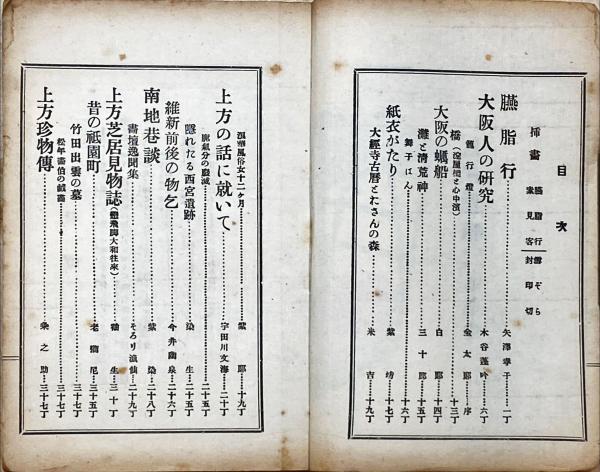 目次
挿畫
臙脂行……矢澤孝子…一丁
大阪人の研究……木谷蓬吟…六丁
籠行燈……金太郎…序
橋(淀屋橋と心中濱)……十三丁
大阪の蠣船……白郎…十四丁
灘と清荒神……三十郎…十五丁
舞子はん……十六丁
紙衣がたり……紫靖…十七丁
大經寺古暦とおさんの森……米吉…十九丁
浪華風俗女十二ヶ月……紫郎…十九丁
上方の話に就いて……宇田川文海…二十丁
廓氣分の廢滅……二十五丁
隱れたる西宮遺跡……染生…二十五丁
維新前後の物乞……今井蘭泉…二十六丁
南地巷談……紫染…二十八丁
書壇逸聞集……そろり浪仙…二十九丁
上方芝居見物誌(戀飛脚大和往來)……生…三十丁
昔の祇園町……老獅尼…三十五丁
竹田出雲の墓……三十七丁
松年畵伯の戯畵……三十七丁
上方珍物傳……粂之助…三十七丁